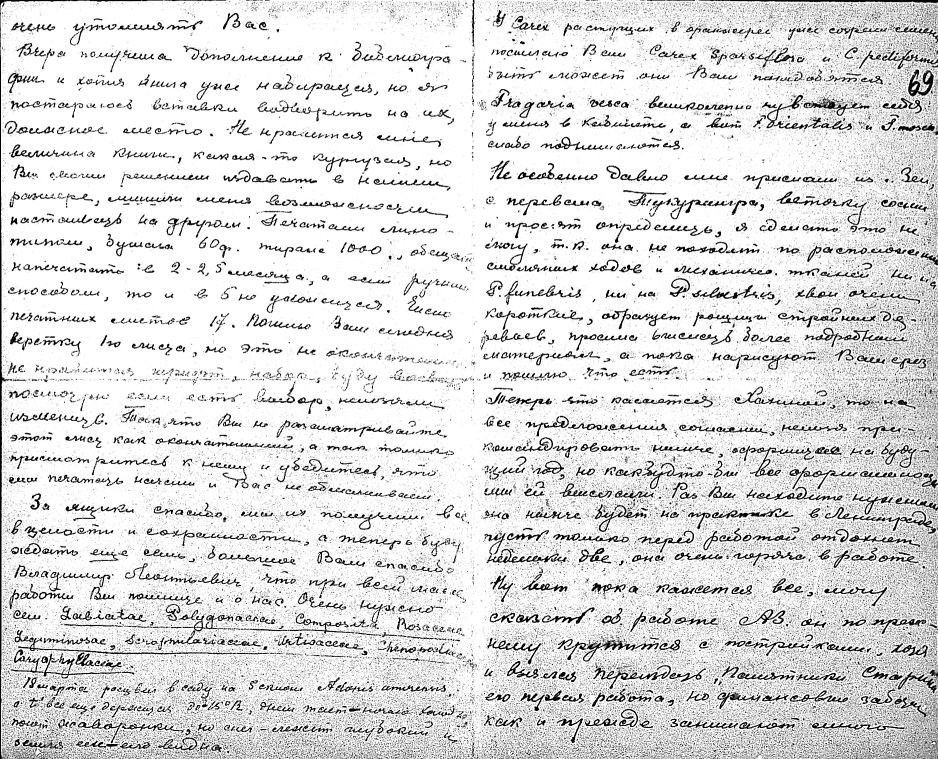 очень утомлять Вас.
Вчера получила дополнение к библиогра-
фии и хотя книга уже набирается, но я
постараюсь вставки водворить на их,
должное место. Не нравится мне,
величина книги, какая-то кургузая, но
Вы своим решением издавать в нашем
размере, лишили меня возможности
настаивать на другом. Печатаем лино-
типом, бумага 60 ф. тираж 1000,
напечатать в 2-2,5 месяца, а если ручным
способом, то и в 5 не уложишься. Число
печатных листов 17. Посылаю Вам сегодня
верстку 1го листа, но это не окончательно
не нравится шрифт, набор, буду
посмотрю если есть выбор, не
изменив. Так что Вы не рассматривайте
этот лист как окончательный, а так только
присмотритесь к нему и убедитесь, что
мы печатать начали и Вас не обманываем.
За ящики спасибо, мы их получили все
в целости и сохранности, а теперь буду
ждать еще семь, большое Вам спасибо
Владимир Леонтьевич что при всей
работы Вы помните и о нас. Очень нужно
сем. Labiatae, Polygonaceae, Composita, Rosaceae,
Leguminosae, Scrophulariaceae, Urticaceae, Chenopodiaceae
Caryophyllaceae.
18 марта расцвел в саду на 5 Adonis amurensis,
а t° все еще держится до -15° R, днем тает-ночью
поют жаворонки, но снег лежит глубокий и
земля еле-еле видна.
У Carex растущих в оранжерее уже созрели семена
посылаю Вам Carex sparsiflora и C. pediformis
быть может они Вам понадобятся
69
Fragaria vesca великолепно чувствует себя
у меня в кабинете, а вот F. orientalis и F. mosch.
слабо поднимаются.
Не особенно давно мне прислали из . Зеи,
с перевала Тукурингра, веточку сосны
и просят определить, я сделать это не
могу, т.к. она не походит по расположению
смоляных ходов и механичес. тканей ни на
P. funebris, ни на P. silvestris, хвои очень
короткие, образует рощицы стройных де-
ревьев, просила выслать более подробный
материал, а пока нарисуют Вам срез
и пошлю что есть.
Теперь что касается Ханиной, то на
все предложения согласны, нельзя при-
командировать нынче, оформить на буду-
щий год, но как будто-бы все оформлено
мы ей выслали. Раз Вы находите нужным
она нынче будет на практике в Ленинграде,
пусть только перед работой отдохнет
недельки две, она очень горяча в работе.
Ну вот пока кажется все, могу
сказать об работе АЗ. он по преж-
нему крутится с постройками, хотя
и вышла перепродаж, Памятники Старины
его первая работа, но финансовые заботы
как и прежде занимают много